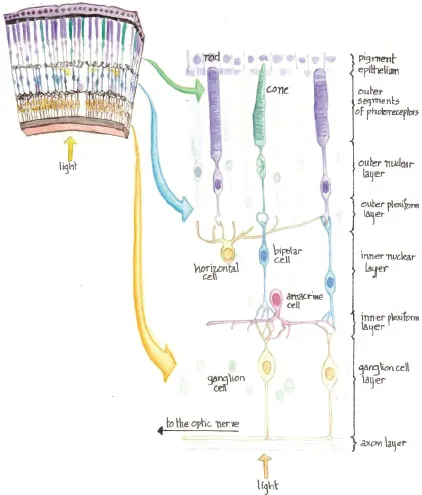 rod
cone
pigment
epithelium
outer
segments
of photoreceptors
light
outer nuclear
layer
outer plexiform
layer
horizontal
cell
bipolar
cell
inner nuclear
layer
amacrine
cell
inner plexiform
layer
ganglion
cell
ganglion cell
layer
to the optic nerve
axon layer
light